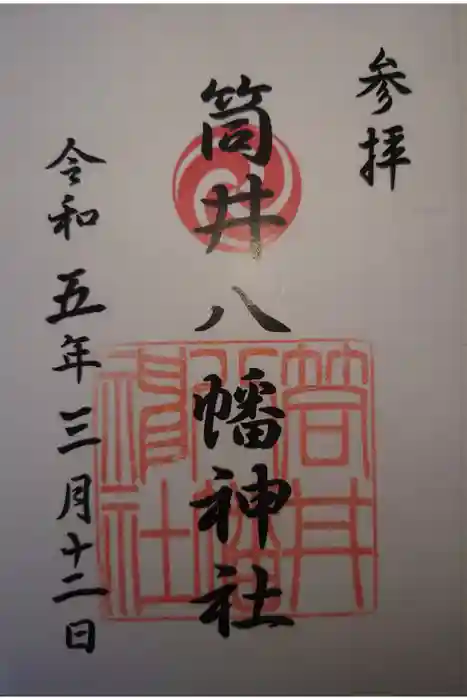 参拝
筒井八幡神社
筒井八幡神社
令和五年三月十二日